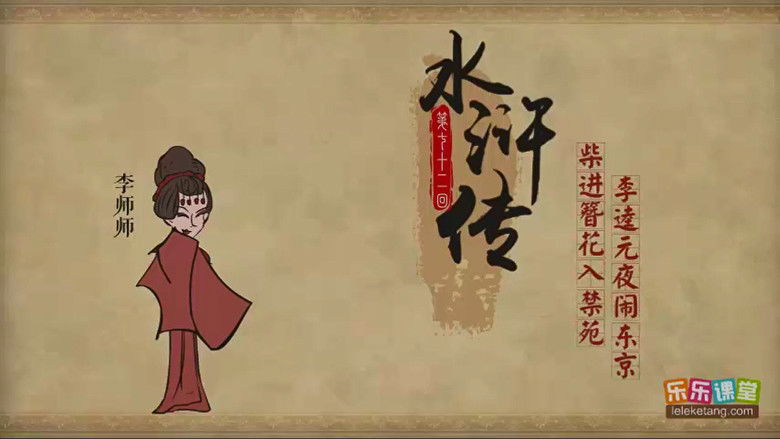 李师师
水浒传
第七十二回
柴进簪花入禁苑
李逵元夜闹东京
乐乐课堂
leleketang.com